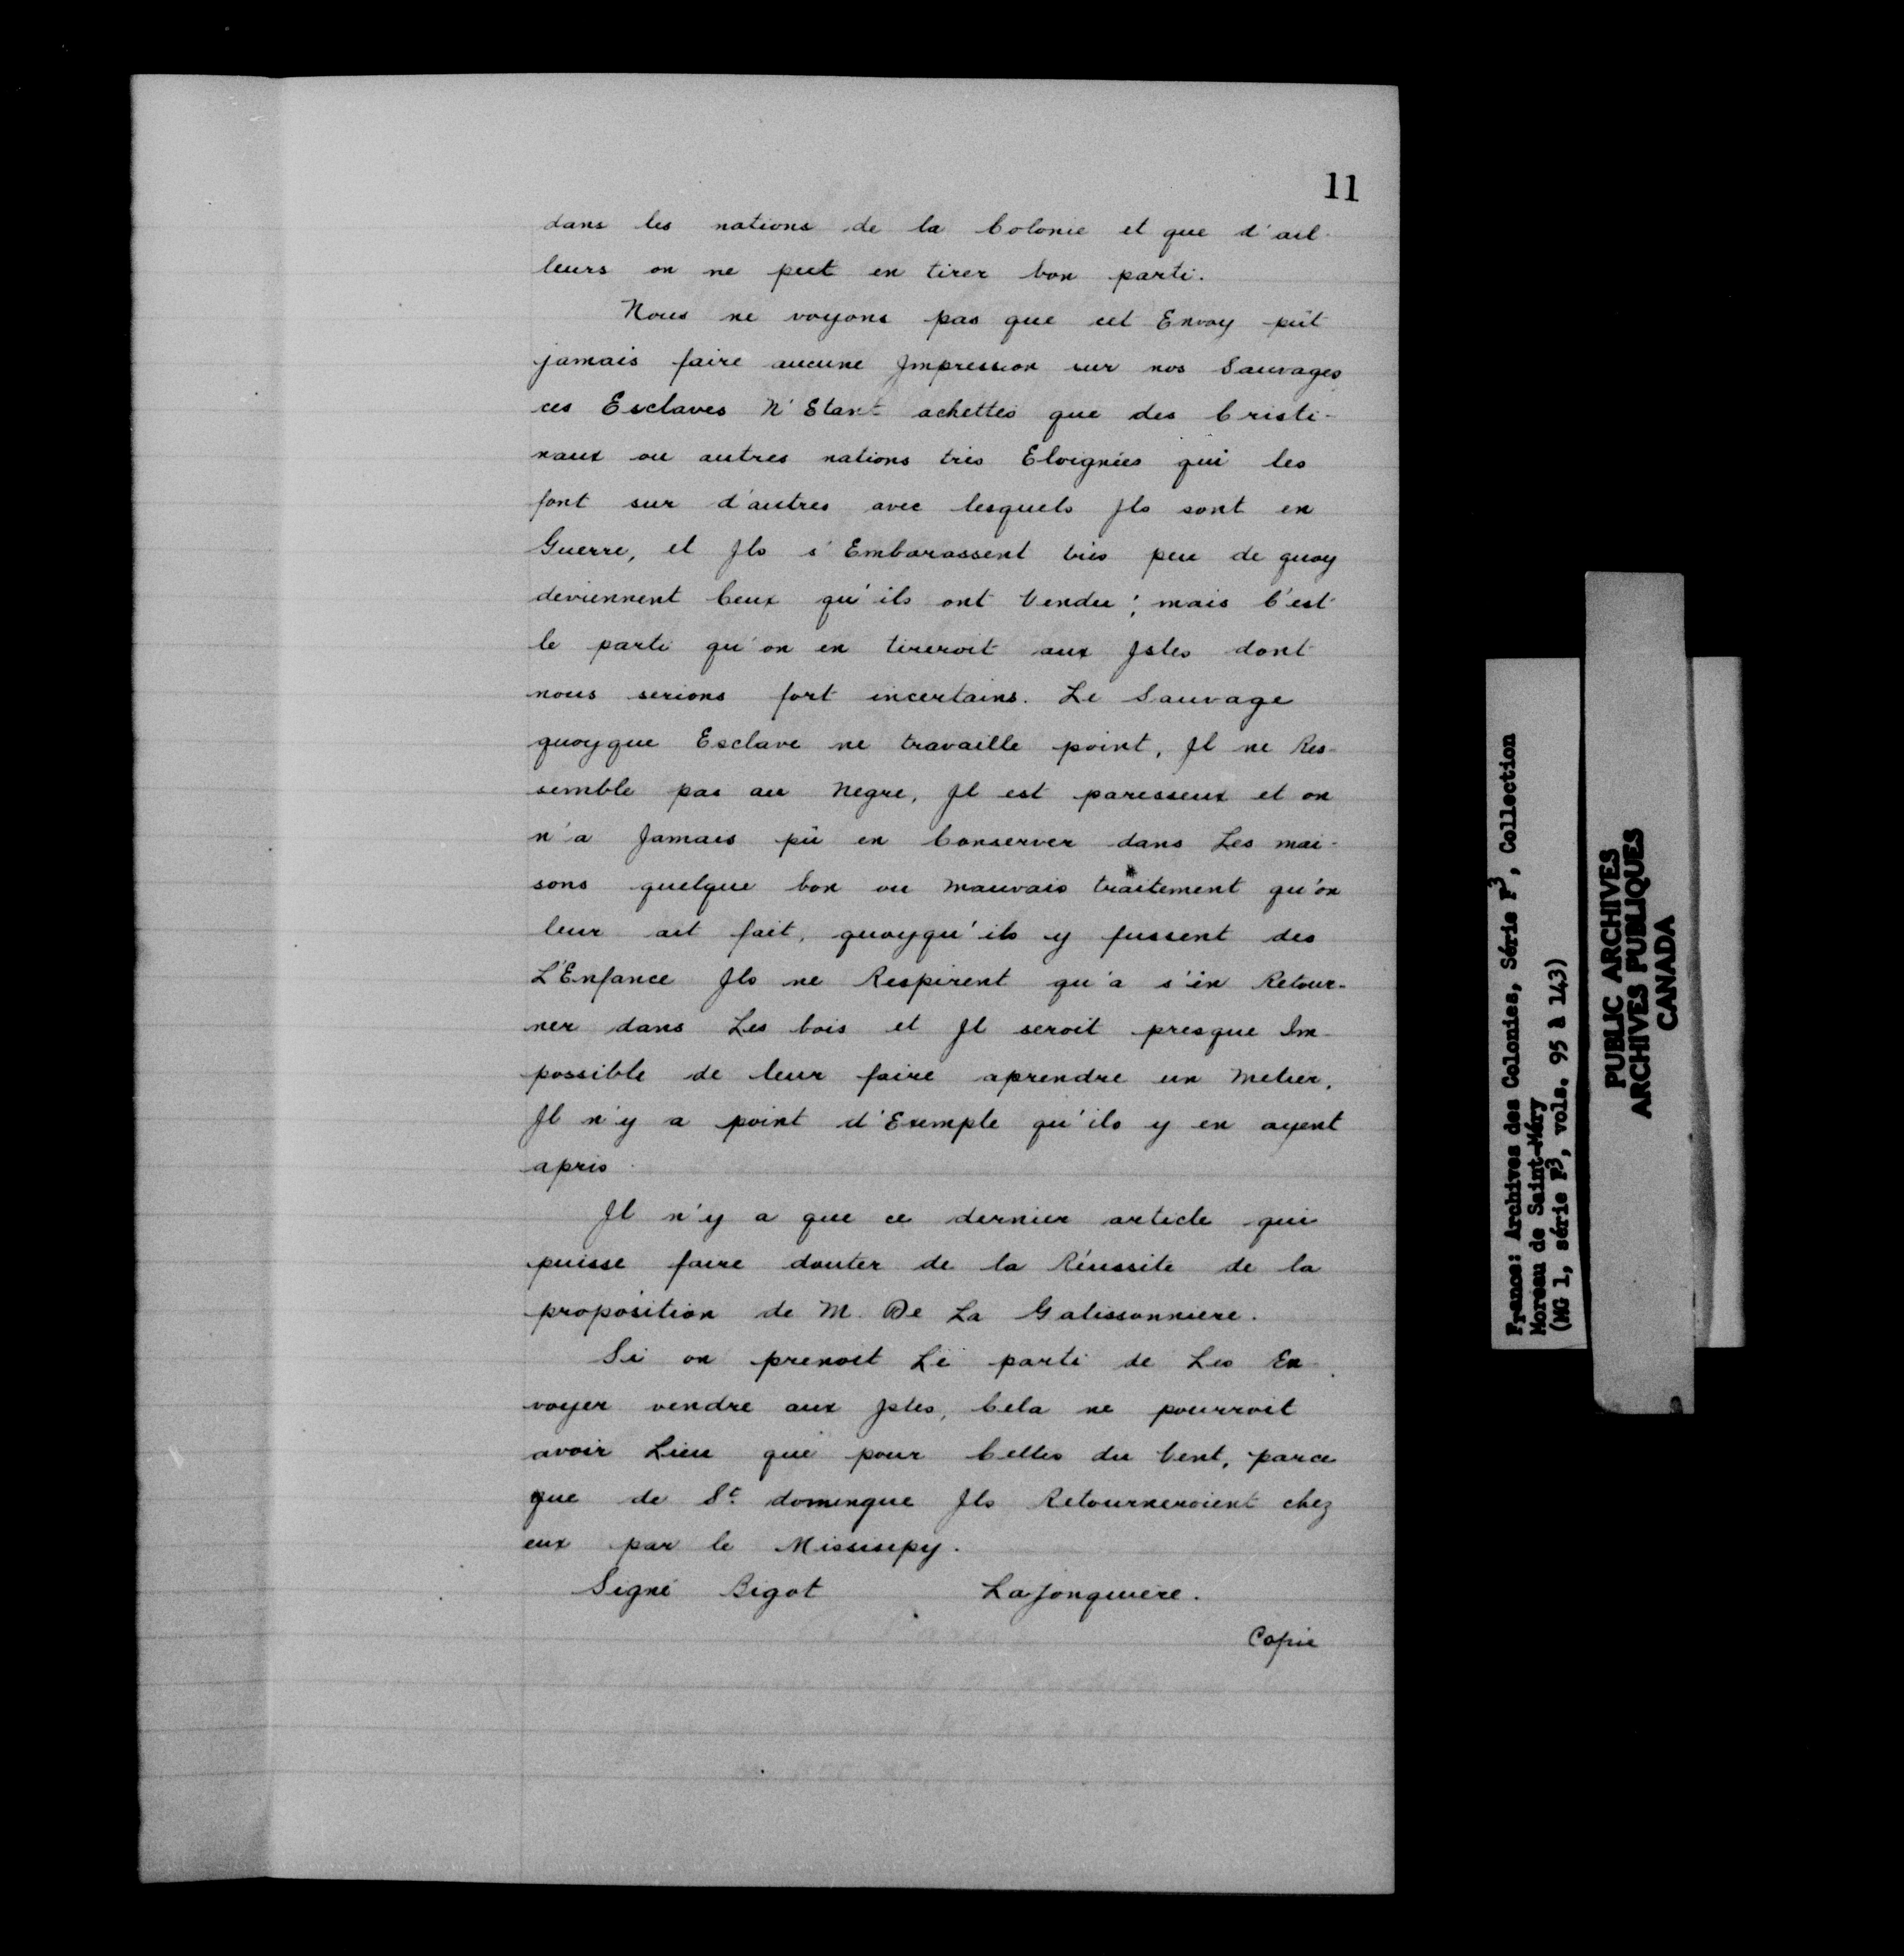 11
dans les nations de la Colonie et que d'ail-
leurs on ne peut en tirer bon parti.
Nous ne voyons pas que cet Envoy pût
jamais faire aucune Impression sur nos Sauvages
ces Esclaves N'Etant achettés que des Cristi-
naux ou autres nations très Eloignées qui les
font sur d'autres avec lesquels Ils sont en
Guerre, et Ils s'Embarassent très peu de quoy
deviennent Ceux qu'ils ont Vendu; mais C'est
le parti qu'on en tireroit aux Isles dont
nous serions fort incertains. Le Sauvage
quoyque Esclave ne travaille point, Il ne Res-
semble pas au Negre, Il est paresseux et on
n'a Jamais pû en Conserver dans Les mai-
sons quelque bon ou mauvais traitement qu'on
leur ait fait, quoyqu'ils y fussent des
L'Enfance Ils ne Respirent qu'a s'en Retour-
ner dans Les bois et Il seroit presque Im-
possible de leur faire aprendre un metier,
Il n'y a point d'Exemple qu'ils y en ayent
apris.
Il n'y a que ce dernier article qui
puisse faire douter de la Réussite de la
proposition de M. De La Galissonniere.
Si on prenoit Le parti de Les En-
voyer vendre aux Isles, Cela ne pourroit
avoir Lieu que pour Celles du Vent, parce
que de St domingue Ils Retourneroient chez
eux par le Missisipy.
Signé Bigot LaJonquiere.
Copie
France: Archives des Colonies, Série F3, Collection
Moreau de Saint-Méry
(MG 1, série F3, vols. 95 à 143)
PUBLIC ARCHIVES
ARCHIVES PUBLIQUES
CANADA